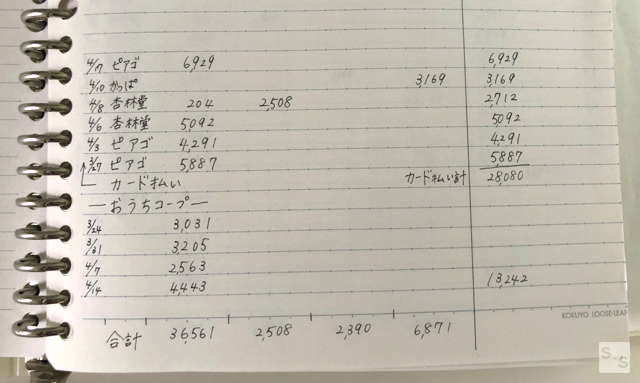 4/7 ピアゴ 6,929 6,929
4/10 かっぱ 3,169 3,169
4/8 杏林堂 204 2,508 2,712
4/6 杏林堂 5,092 5,092
4/3 ピアゴ 4,291 4,291
3/27 ピアゴ 5,887 5,887
カード払い カード払い計 28,080
―おうちコープ―
3/24 3,031
3/31 3,205
4/7 2,563
4/14 4,443 13,242
KOKUYO LOOSE-LEAF
合計 36,561 2,508 2,390 6,871
S S